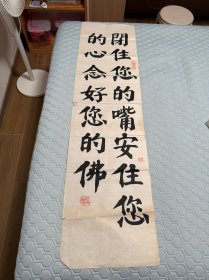 閉住您的嘴安住您
的心念好您的佛